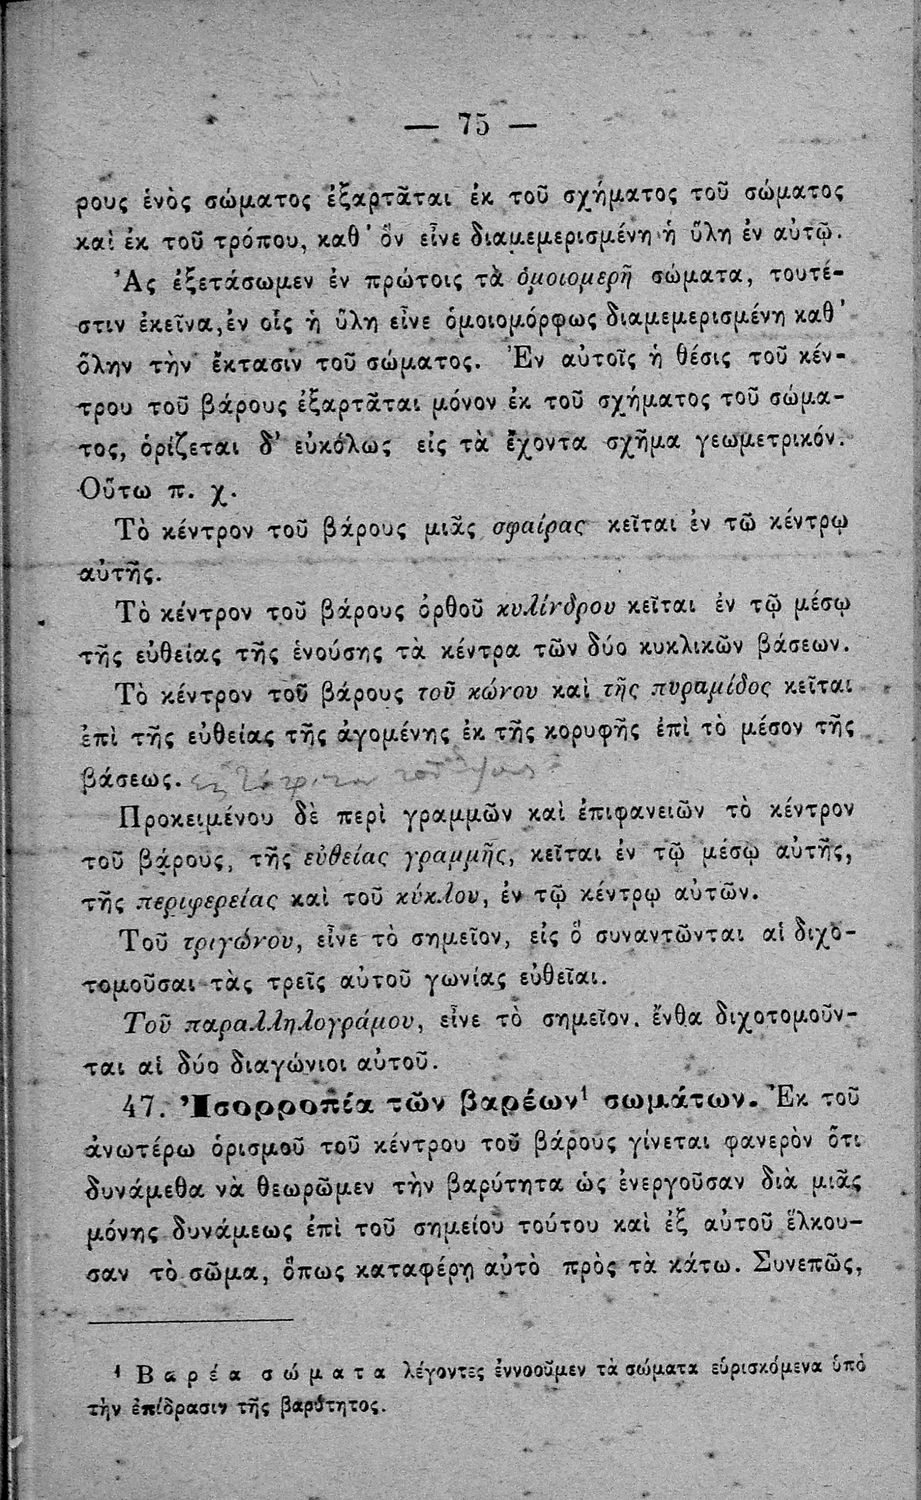 — 75 —
ρους ἑνὸς σώματος ἐξαρτᾶται ἐκ τοῦ σχήματος τοῦ σώματος
καὶ ἐκ τοῦ τρόπου, καθ' ὃν εἶνε διαμεμερισμένη ἡ ὕλη ἐν αὐτῷ.
Ἂς ἐξετάσωμεν ἐν πρώτοις τὰ ὁμοιομερῆ σώματα, τουτέ-
στιν ἐκεῖνα, ἐν οἷς ἡ ὕλη εἶνε ὁμοιομόρφως διαμεμερισμένη καθ'
ὅλην τὴν ἔκτασιν τοῦ σώματος. Ἐν αὐτοῖς ἡ θέσις τοῦ κέν-
τρου τοῦ βάρους ἐξαρτᾶται μόνον ἐκ τοῦ σχήματος τοῦ σώμα-
τος, ὁρίζεται δ' εὐκόλως εἰς τὰ ἔχοντα σχῆμα γεωμετρικόν.
Οὕτω π. χ.
Τὸ κέντρον τοῦ βάρους μιᾶς σφαίρας κεῖται ἐν τῶ κέντρῳ
αὐτῆς.
Τὸ κέντρον τοῦ βάρους ὀρθοῦ κυλίνδρου κεῖται ἐν τῷ μέσῳ
τῆς εὐθείας τῆς ἑνούσης τὰ κέντρα τῶν δύο κυκλικῶν βάσεων.
Τὸ κέντρον τοῦ βάρους τοῦ κώνου καὶ τῆς πυραμίδος κεῖται
ἐπὶ τῆς εὐθείας τῆς ἀγομένης ἐκ τῆς κορυφῆς ἐπὶ τὸ μέσον τῆς
βάσεως.
Προκειμένου δὲ περὶ γραμμῶν καὶ ἐπιφανειῶν τὸ κέντρον
τοῦ βάρους, τῆς εὐθείας γραμμῆς, κεῖται ἐν τῷ μέσῳ αὐτῆς,
τῆς περιφερείας καὶ τοῦ κύκλου, ἐν τῷ κέντρῳ αὐτῶν.
Τοῦ τριγώνου, εἶνε τὸ σημεῖον, εἰς ὃ συναντῶνται αἱ διχο-
τομοῦσαι τὰς τρεῖς αὐτοῦ γωνίας εὐθεῖαι.
Τοῦ παραλληλογράμου, εἶνε τὸ σημεῖον. ἔνθα διχοτομοῦν-
ται αἱ δύο διαγώνιοι αὐτοῦ.
47. Ἰσορροπία τῶν βαρέων¹ σωμάτων. Ἐκ τοῦ
ἀνωτέρω ὁρισμοῦ τοῦ κέντρου τοῦ βάρους γίνεται φανερὸν ὅτι
δυνάμεθα νὰ θεωρῶμεν τὴν βαρύτητα ὡς ἐνεργοῦσαν διὰ μιᾶς
μόνης δυνάμεως ἐπὶ τοῦ σημείου τούτου καὶ ἐξ αὐτοῦ ἕλκου-
σαν τὸ σῶμα, ὅπως καταφέρῃ αὐτὸ πρὸς τὰ κάτω. Συνεπῶς,
¹ Βαρέα σώματα λέγοντες ἐννοοῦμεν τὰ σώματα εὑρισκόμενα ὑπὸ
τὴν ἐπίδρασιν τῆς βαρύτητος.